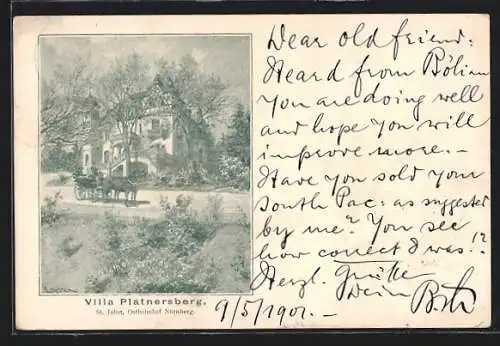 Dear old friend:
Heard from Bölian
You are doing well
and hope you will
improve more. –
Have you sold your
South Pac: as suggested
by me? You see
how correct I was!?
Herzl. Grüße
Dein
9/5/1901. –
Villa Platnersberg.
St. Jobst, Ostbahnhof Nürnberg.